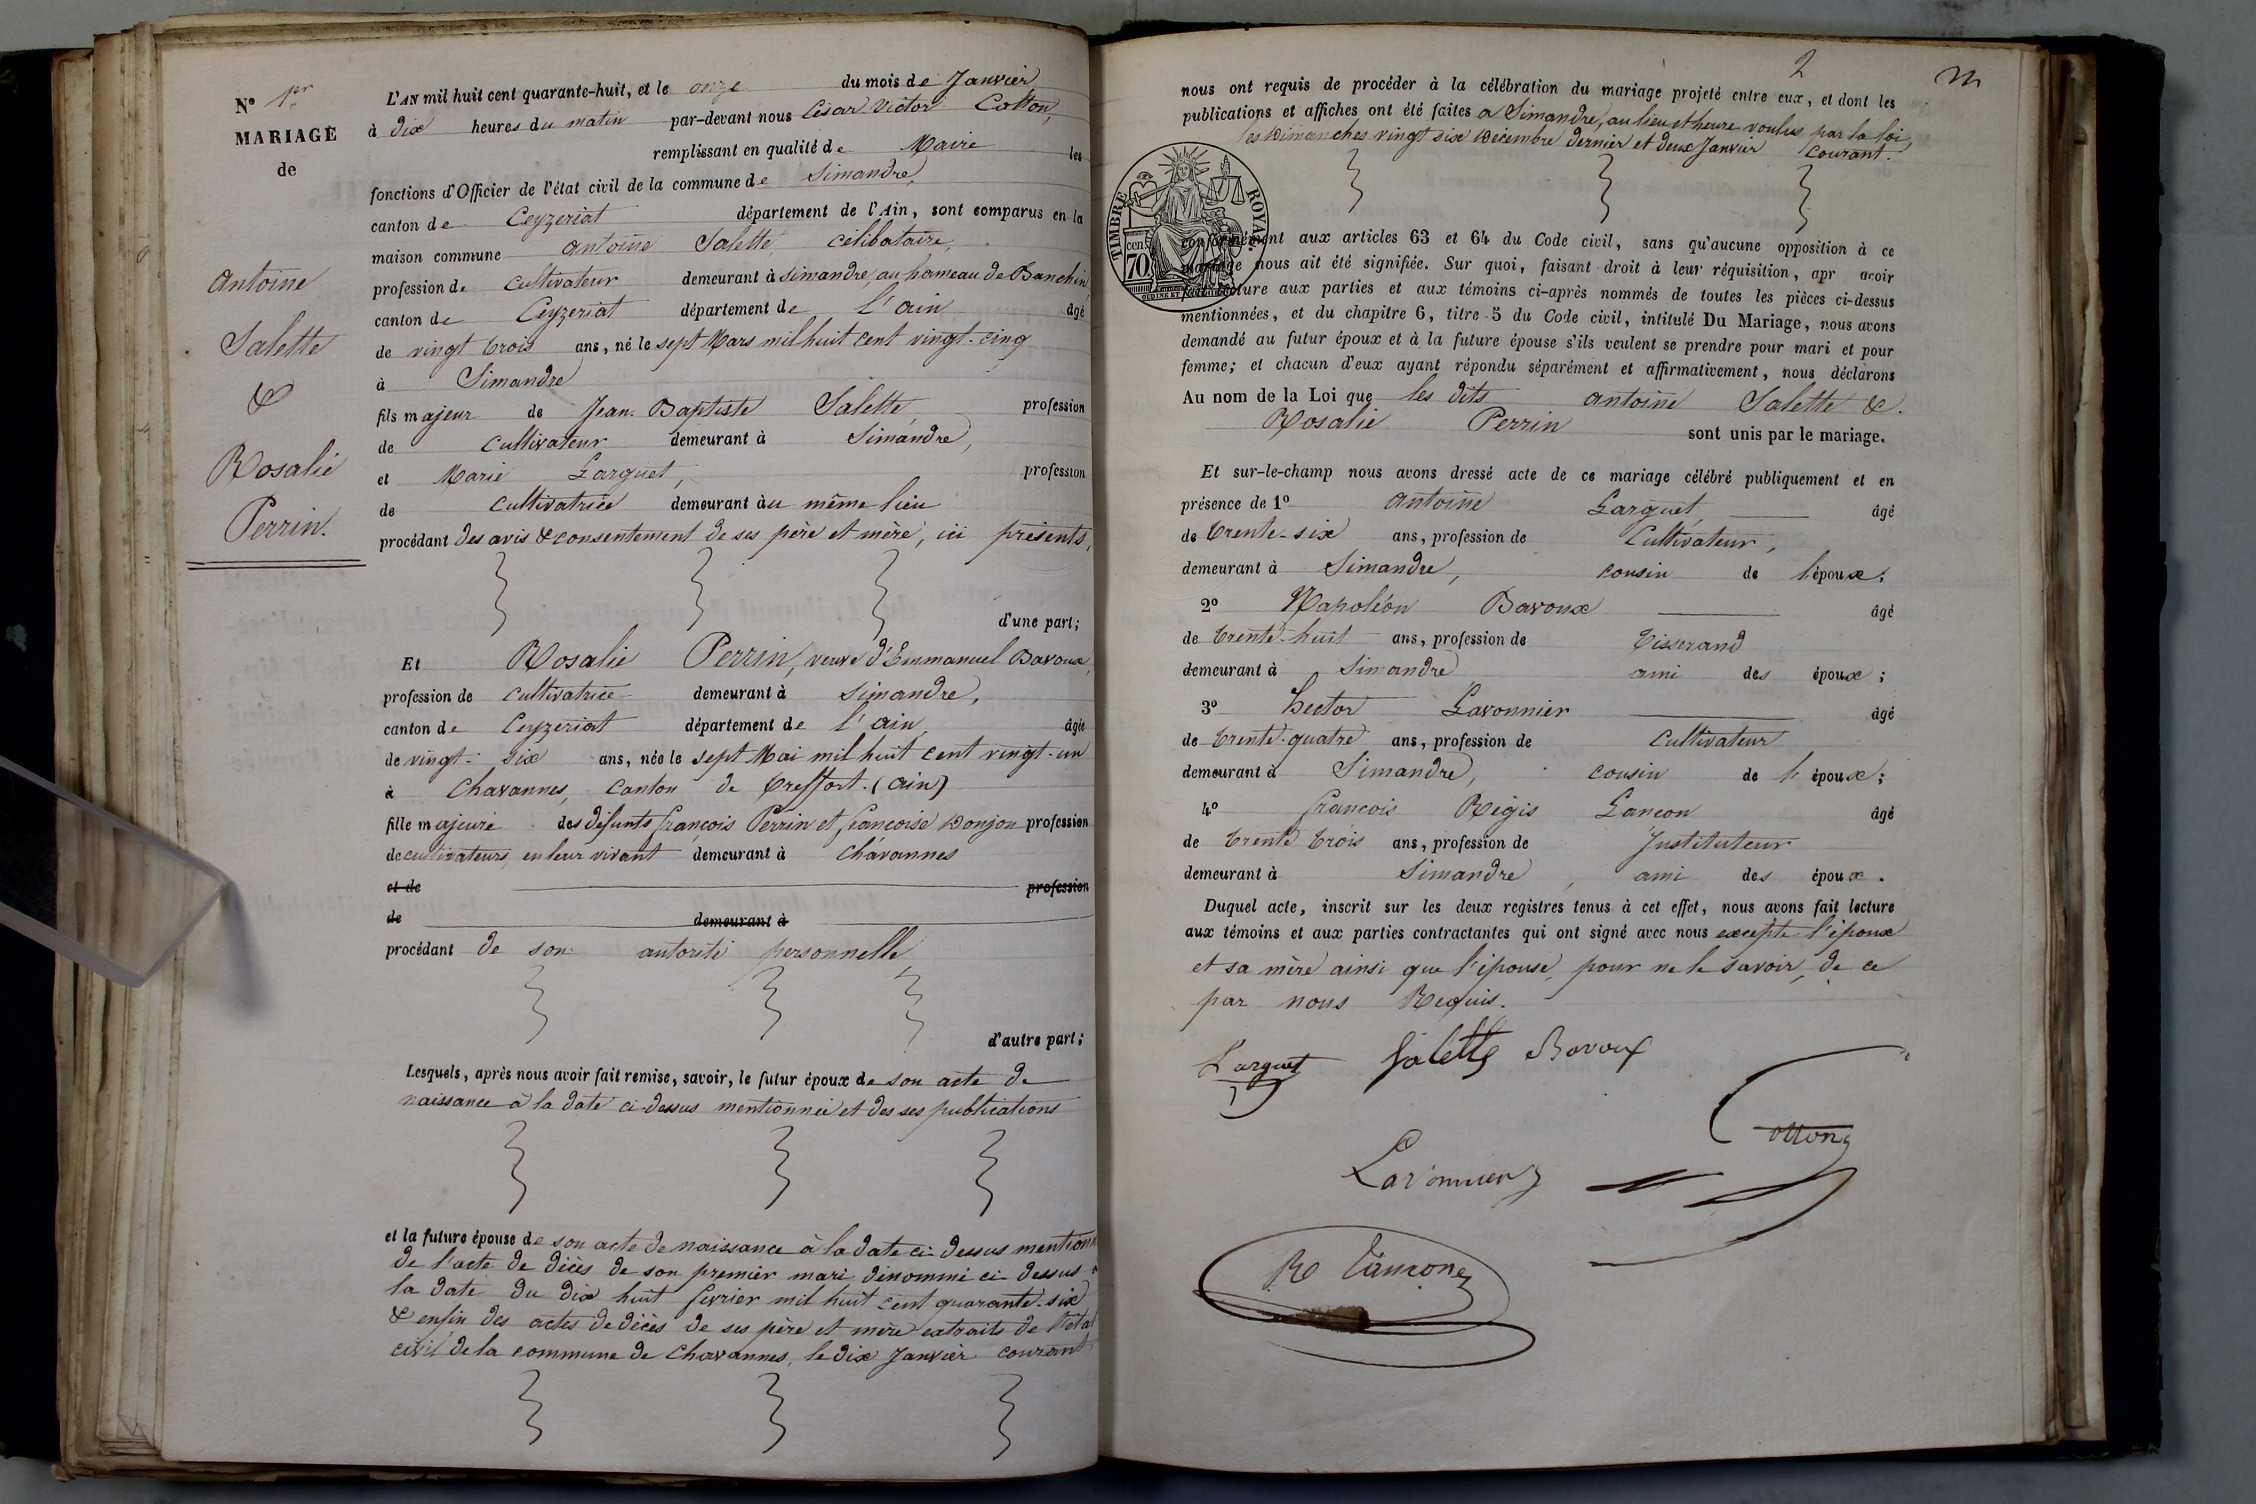 N° 1er
MARIAGE
de
Antoine
Salette
&
Rosalie
Perrin.
L'AN mil huit cent quarante-huit, et le onze du mois de Janvier
à dix heures du matin par-devant nous César Victor Cotton,
remplissant en qualité de Maire les
fonctions d'Officier de l'état civil de la commune de Simandre,
canton de Ceyzeriat département de l'Ain, sont comparus en la
maison commune antoine Salette, célibataire,
profession de cultivateur demeurant à Simandre, au hameau de Banchin,
canton de Ceyzeriat département de l'ain âgé
de vingt trois ans, né le sept Mars mil huit cent vingt-cinq
à Simandre
fils majeur de Jean-Baptiste Salette profession
de cultivateur demeurant à Simandre,
et Marie Larguet, profession
de cultivatrice demeurant au même lieu
procédant des avis & consentement de ses père et mère, ici présents,
d'une part;
Et Rosalie Perrin, veuve d'Emmanuel Bavoux,
profession de cultivatrice demeurant à Simandre,
canton de Ceyzeriat département de l'ain, âgée
de vingt-six ans, née le sept Mai mil huit cent vingt-un
à Chavannes, canton de Treffort (ain)
fille majeure des défunts françois Perrin et françoise Donjon profession
de cultivateurs, en leur vivant demeurant à Chavannes
et de profession
de demeurant à
procédant de son autorité personnelle,
d'autre part;
Lesquels, après nous avoir fait remise, savoir, le futur époux de son acte de
naissance à la date ci-dessus mentionnée et des ses publications
et la future épouse de son acte de naissance à la date ci-dessus mentionn
de l'acte de décès de son premier mari dénommé ci-dessus à
la date du dix huit fevrier mil huit cent quarante-six
& enfin des actes de décès de ses père et mère extraits de l'état
civil de la commune de Chavannes, le dix Janvier courant
2
nous ont requis de procéder à la célébration du mariage projeté entre eux, et dont les
publications et affiches ont été faites a Simandre, au lieu et heure voulus par la loi,
les Dimanches vingt six Décembre dernier et deux Janvier courant.
TIMBRE ROYAL
70 cen.
conformément aux articles 63 et 64 du Code civil, sans qu'aucune opposition à ce
mariage nous ait été signifiée. Sur quoi, faisant droit à leur réquisition, apr avoir
fait lecture aux parties et aux témoins ci-après nommés de toutes les pièces ci-dessus
mentionnées, et du chapitre 6, titre 5 du Code civil, intitulé Du Mariage, nous avons
demandé au futur époux et à la future épouse s'ils veulent se prendre pour mari et pour
femme; et chacun d'eux ayant répondu séparément et affirmativement, nous déclarons
Au nom de la Loi que les dits antoine Salette &
Rosalie Perrin sont unis par le mariage.
Et sur-le-champ nous avons dressé acte de ce mariage célébré publiquement et en
présence de 1° Antoine Larguet, âgé
de trente-six ans, profession de Cultivateur,
demeurant à Simandre, cousin de l'époux;
2° Napoléon Bavoux âgé
de trente-huit ans, profession de tisserand
demeurant à Simandre ami des époux;
3° Hector Lavonnier âgé
de trente-quatre ans, profession de cultivateur
demeurant à Simandre, cousin de l'époux;
4° françois Régis Lançon âgé
de trente trois ans, profession de Instituteur
demeurant à Simandre, ami des époux.
Duquel acte, inscrit sur les deux registres tenus à cet effet, nous avons fait lecture
aux témoins et aux parties contractantes qui ont signé avec nous excepté l'époux
et sa mère ainsi que l'épouse, pour ne le savoir, de ce
par nous Requis.
Larguet Salette Bavoux
Cotton
Lavonnier
R Lançon